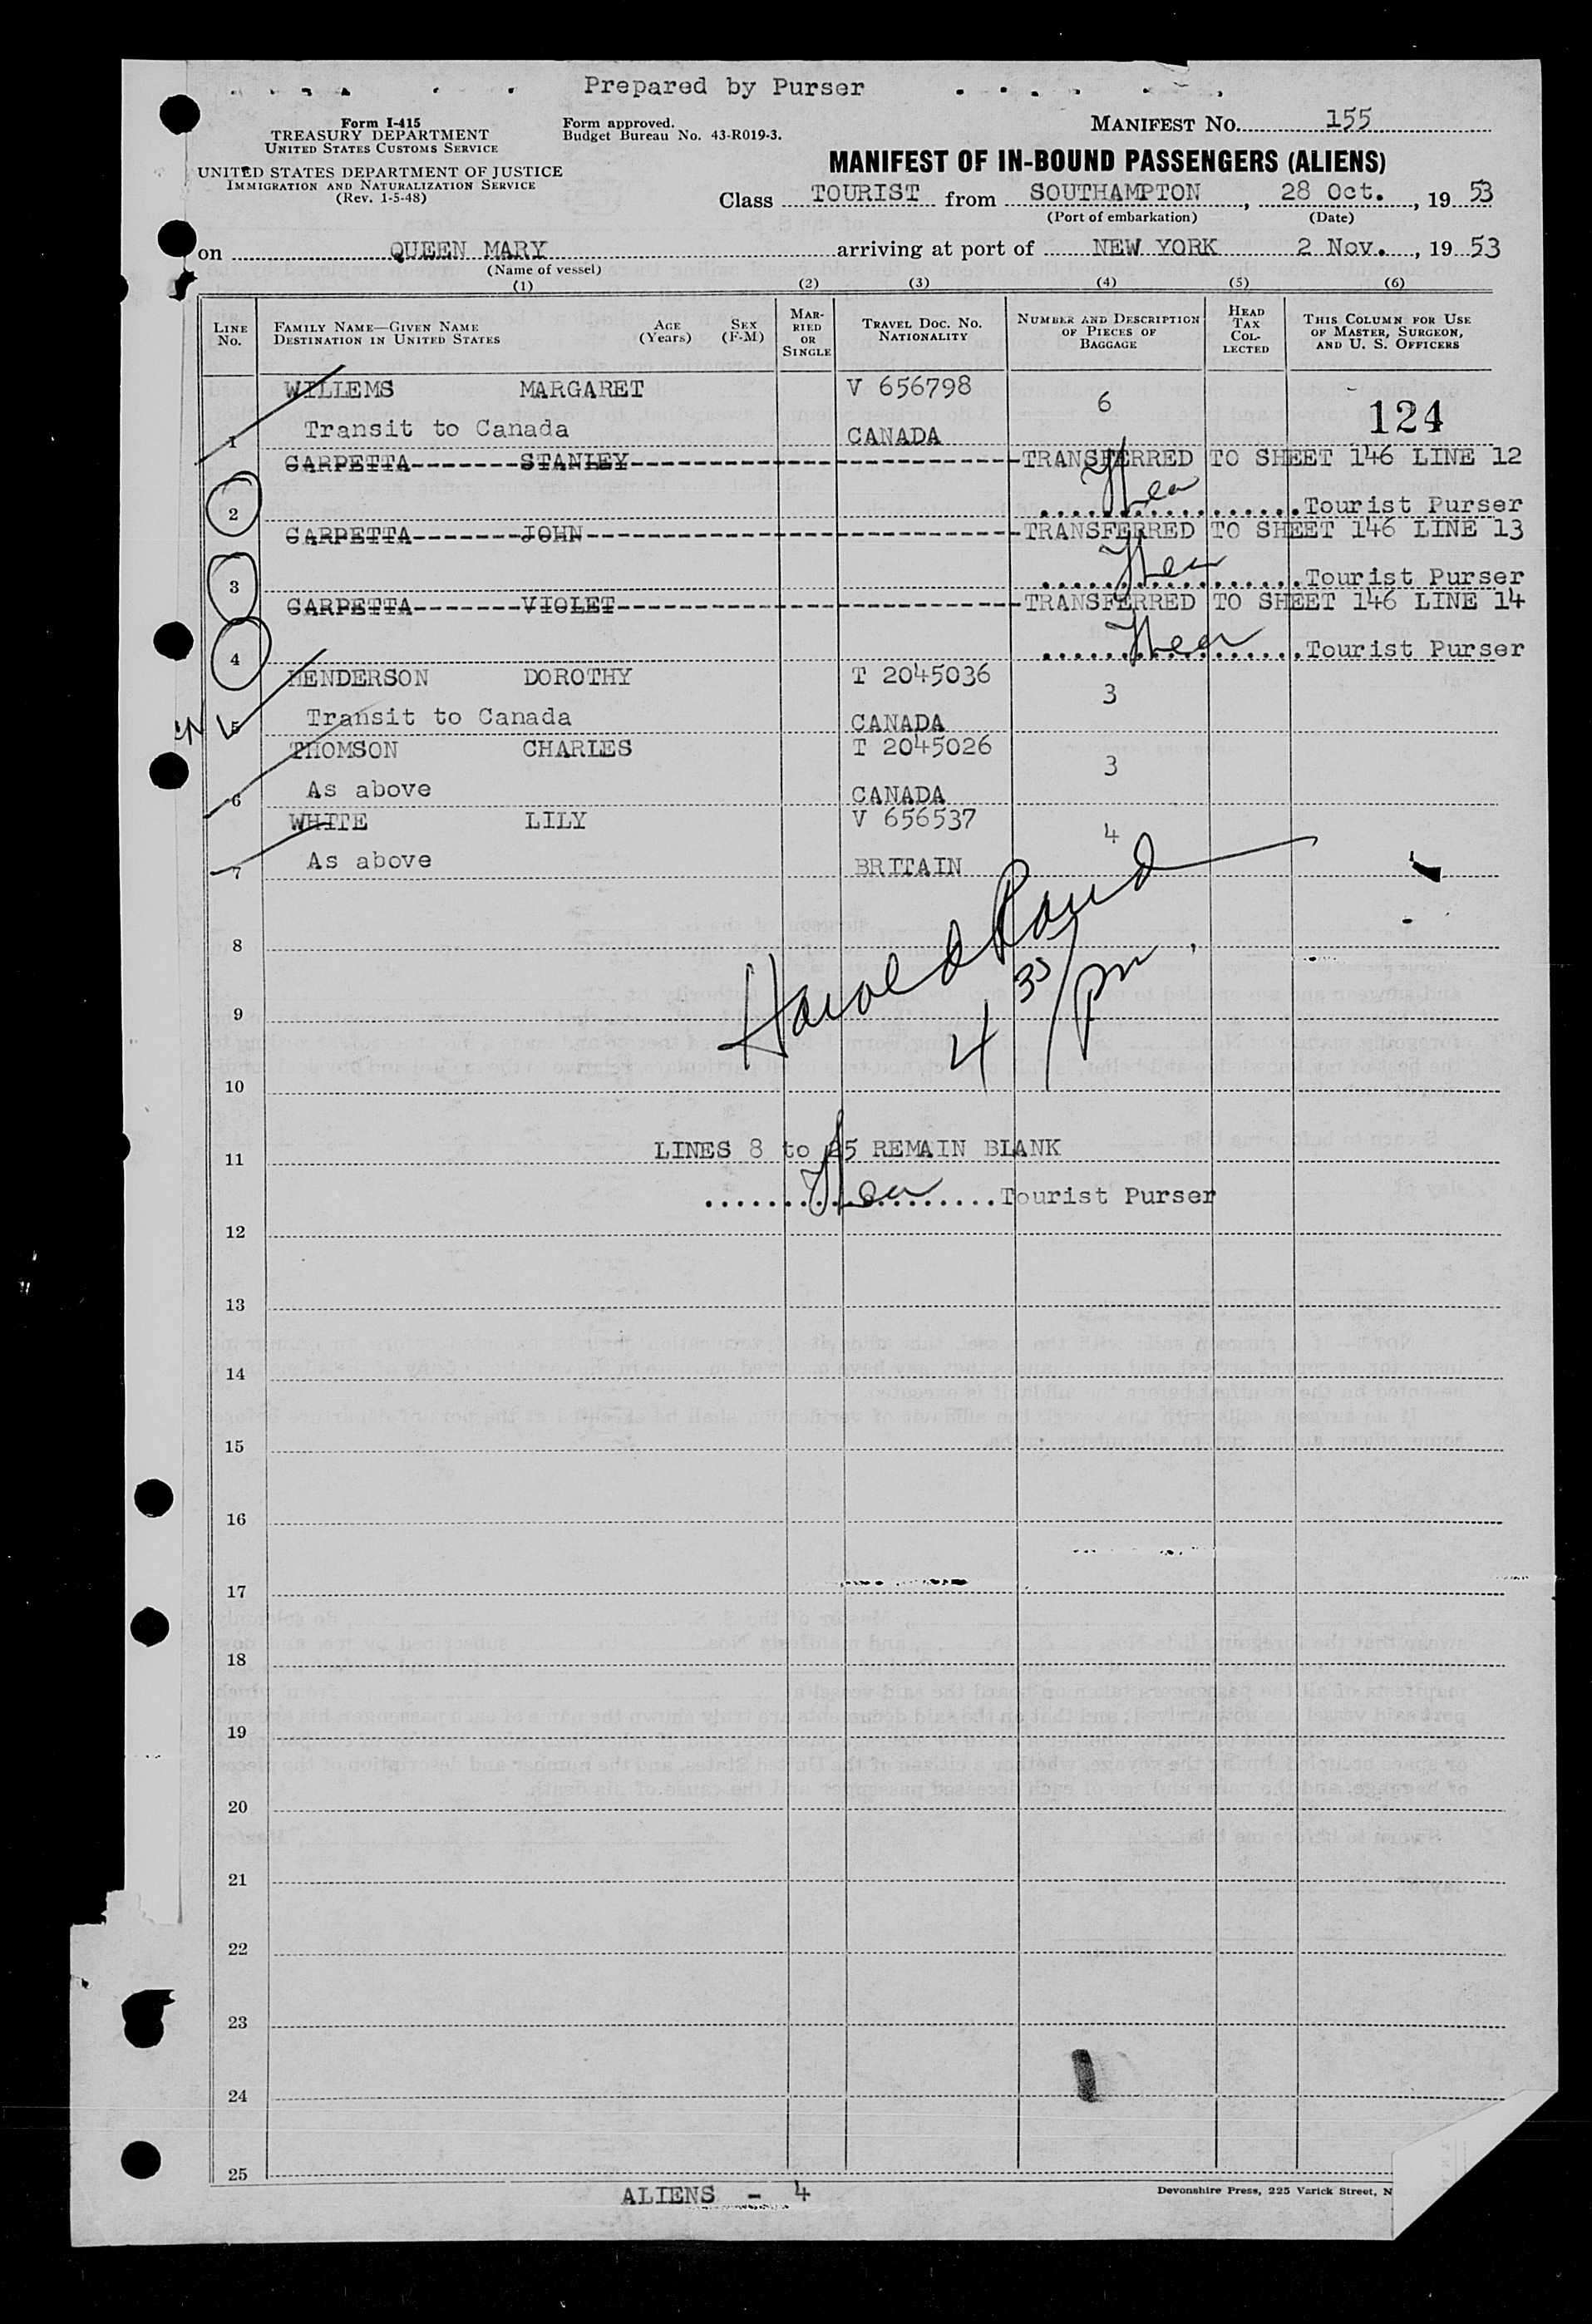 Prepared by Purser
Form I-415
TREASURY DEPARTMENT
UNITED STATES CUSTOMS SERVICE
UNITED STATES DEPARTMENT OF JUSTICE
IMMIGRATION AND NATURALIZATION SERVICE
(Rev. 1-5-48)
Form approved.
Budget Bureau No. 43-R019-3.
MANIFEST No. 155
MANIFEST OF IN-BOUND PASSENGERS (ALIENS)
Class TOURIST from SOUTHAMPTON, 28 Oct., 19 53
(Port of embarkation) (Date)
on QUEEN MARY arriving at port of NEW YORK 2 Nov., 19 53
(Name of vessel)
(1) (2) (3) (4) (5) (6)
LINE No. FAMILY NAME—GIVEN NAME DESTINATION IN UNITED STATES AGE (Years) SEX (F-M) MARRIED OR SINGLE TRAVEL DOC. NO. NATIONALITY NUMBER AND DESCRIPTION OF PIECES OF BAGGAGE HEAD TAX COLLECTED THIS COLUMN FOR USE OF MASTER, SURGEON, AND U. S. OFFICERS
WILLEMS MARGARET V 656798 6 124
1 Transit to Canada CANADA
GARPETTA-------STANLEY-------------------------TRANSFERRED TO SHEET 146 LINE 12
2 ..................Tourist Purser
GARPETTA-------JOHN----------------------------TRANSFERRED TO SHEET 146 LINE 13
3 ..................Tourist Purser
GARPETTA-------VIOLET--------------------------TRANSFERRED TO SHEET 146 LINE 14
4 ..................Tourist Purser
HENDERSON DOROTHY T 2045036 3
5 Transit to Canada CANADA
THOMSON CHARLES T 2045026 3
6 As above CANADA
WHITE LILY V 656537 4
7 As above BRITAIN
8
Harold Rand
9
4 35/pm.
10
11 LINES 8 to 25 REMAIN BLANK
...................Tourist Purser
12
13
14
15
16
17
18
19
20
21
22
23
24
25
ALIENS - 4
Devonshire Press, 225 Varick Street, N